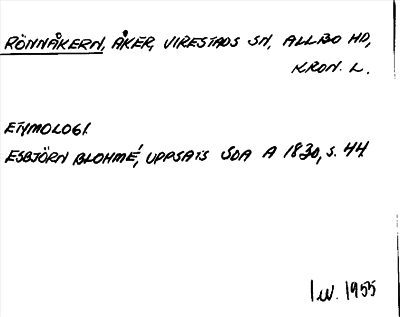 RÖNNÅKERN, ÅKER, VIRESTADS SN, ALLBO HD,
KRON. L.
ETYMOLOGI.
ESBJÖRN BLOHMÉ, UPPSATS SOA A 1830, S. 44.
1955